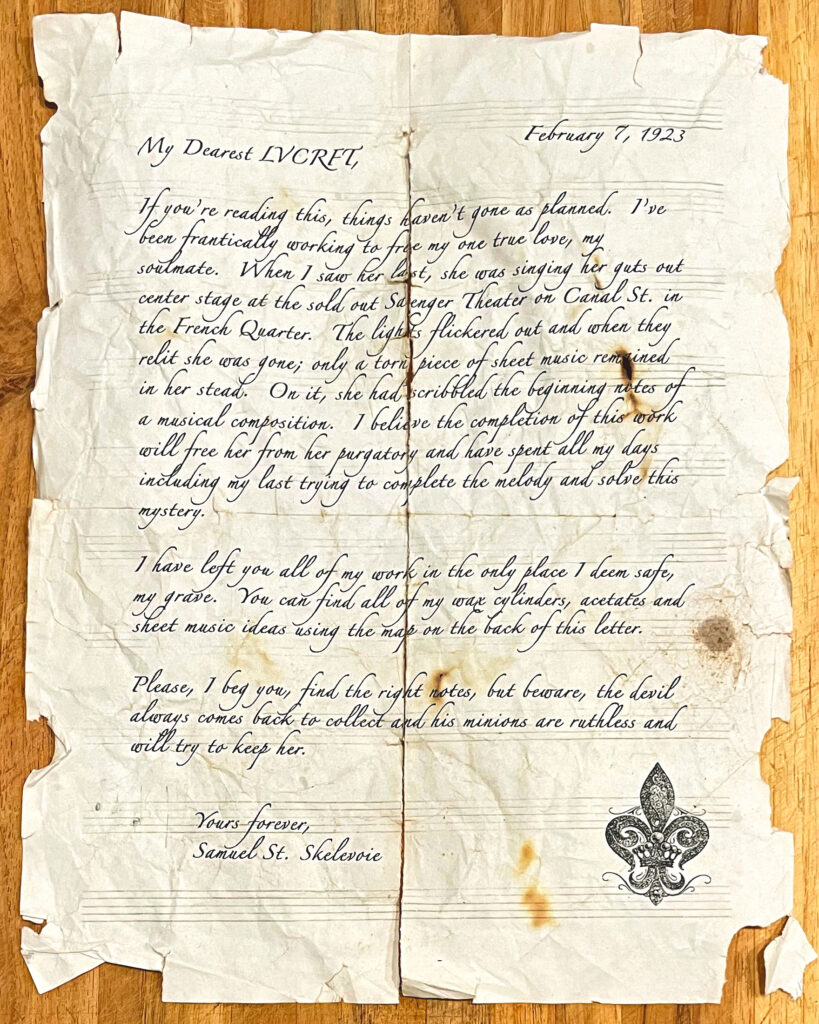 February 7, 1923
My Dearest LVCRFT,
If you're reading this, things haven't gone as planned. I've
been frantically working to free my one true love, my
soulmate. When I saw her last, she was singing her guts out
center stage at the sold out Saenger Theater on Canal St. in
the French Quarter. The lights flickered out and when they
relit she was gone; only a torn piece of sheet music remained
in her stead. On it, she had scribbled the beginning notes of
a musical composition. I believe the completion of this work
will free her from her purgatory and have spent all my days
including my last trying to complete the melody and solve this
mystery.
I have left you all of my work in the only place I deem safe,
my grave. You can find all of my wax cylinders, acetates and
sheet music ideas using the map on the back of this letter.
Please, I beg you, find the right notes, but beware, the devil
always comes back to collect and his minions are ruthless and
will try to keep her.
Yours forever,
Samuel St. Skelevoie